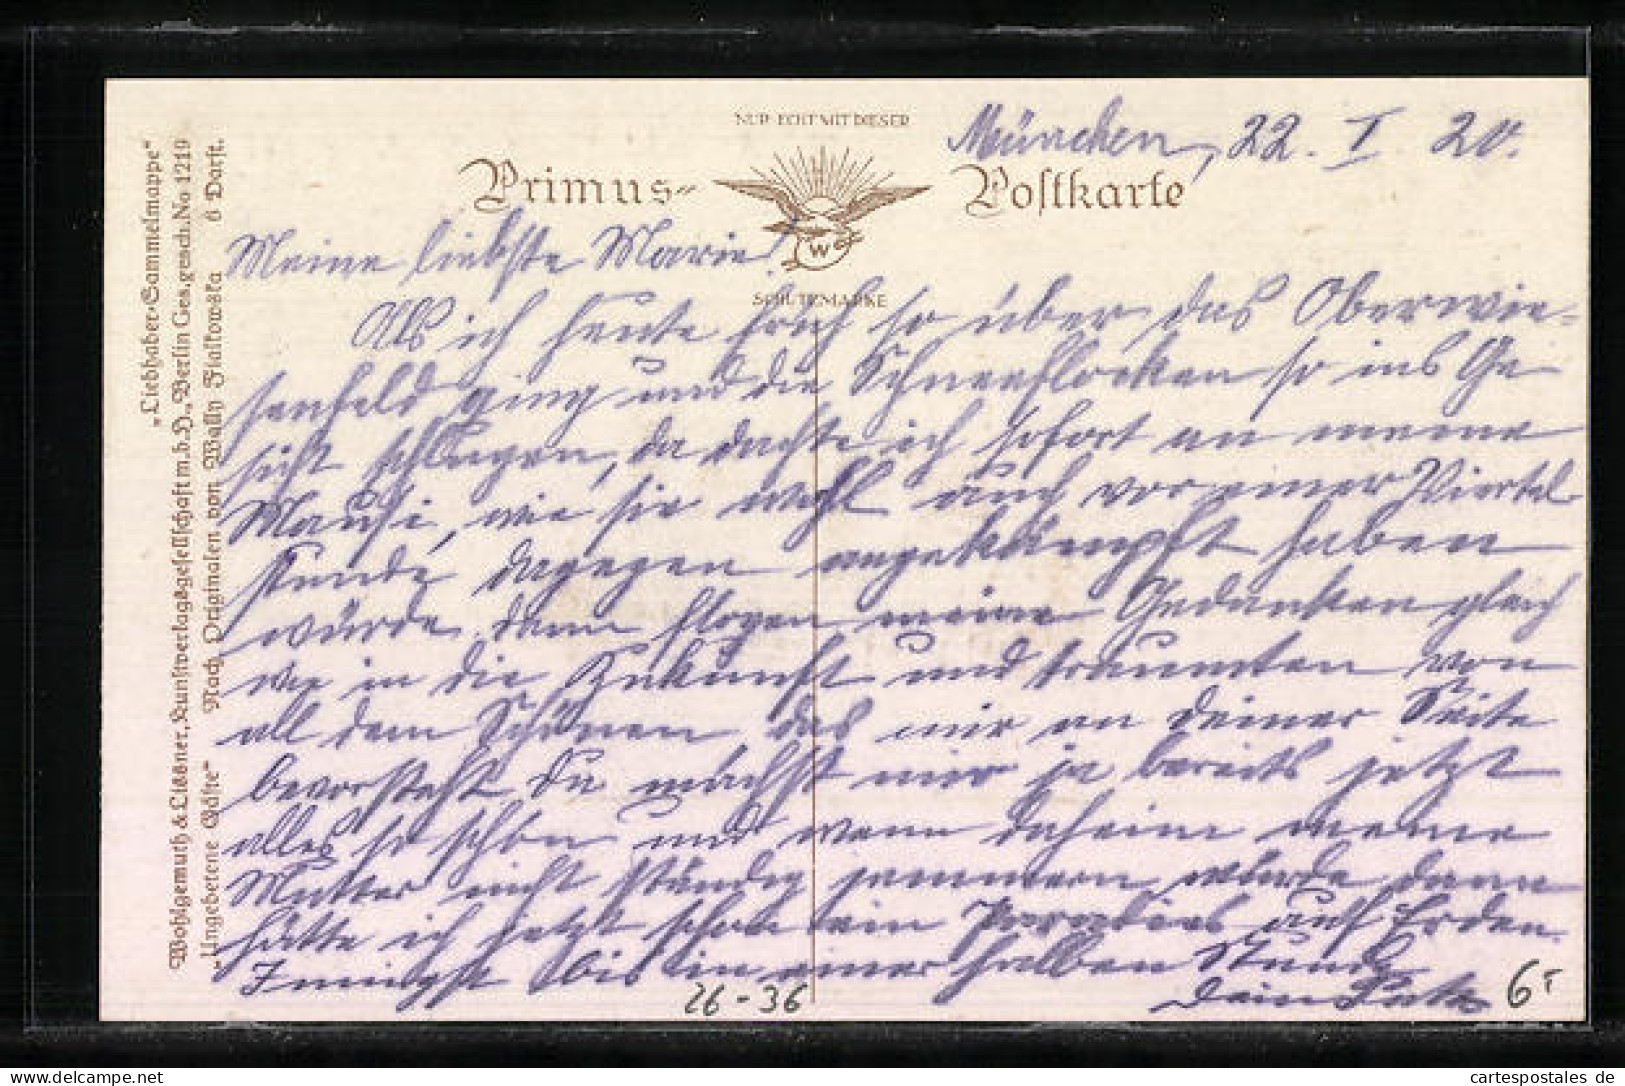 München, 22. I. 20.
NUR ECHT MIT DIESER
Primus-
Postkarte
W
SCHUTZMARKE
Meine liebste Marie!
Als ich heute früh so über das Oberwie-
senfeld ging und die Schneeflocken so ins Ge-
sicht schlugen, da dachte ich sofort an meine
Mausi, wie sie wohl auch vor einer Viertel-
stunde dagegen angekämpft haben
würde, dann flogen meine Gedanken gleich
wie in die Zukunft und träumten von
all dem Schönen das mir an deiner Seite
bevorsteht. Du machst mir ja bereits jetzt
alles so schön und wenn daheim meine
Mutter nicht ständig jammern würde dann
hätte ich jetzt schon ein Paradies auf Erden.
Innigst bis in einer halben Stunde
Dein
26-36
6,-
„Liebhaber-Sammelmappe“
Wohlgemuth & Lissner, Kunstverlagsgesellschaft m.b.H., Berlin Ges. gesch. No 1219
„Ungebetene Gäste“ Nach Originalen von Wally Fialkowska 6 Darst.
For sale on Delcampe
cartespostales de